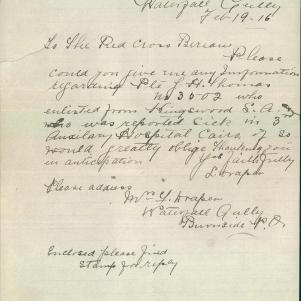 Waterfall Gully
Feb 19. 16
To The Red Cross Bureau
Please
could you give me any Information
regarding Pte S H. Thomas
No 3502 who
enlisted from Kingswood S.A.
who was reported sick in 3rd
Auxilary Hospital Cairo, if so
would greatly oblige Thanking you
in anticipation
Yos faithfully
L Draper
Please address
Mrs L. Draper
Waterfall Gully
Burnside P.O.
Enclosed please find
stamp for reply